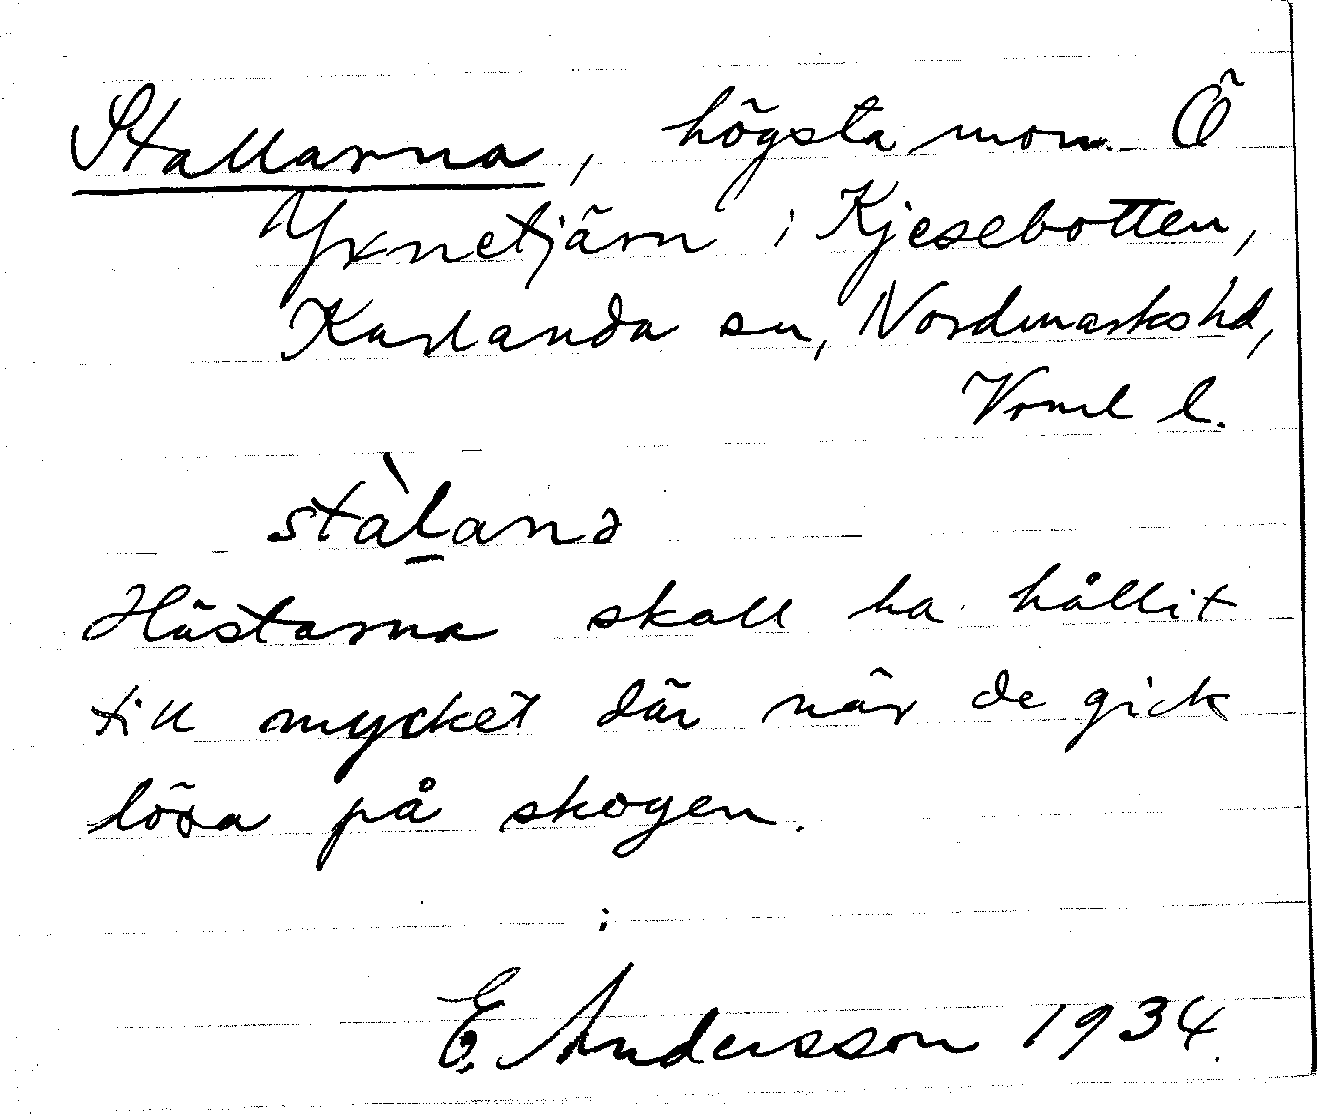 Stallarna, högsta mon Ö
Yxnetjärn i Kjesebotten,
Karlanda sn, Nordmarks hd,
Vrml l.
stàlanə
Hästarna skall ha hållit
till mycket där när de gick
lösa på skogen.
E. Andersson 1934.